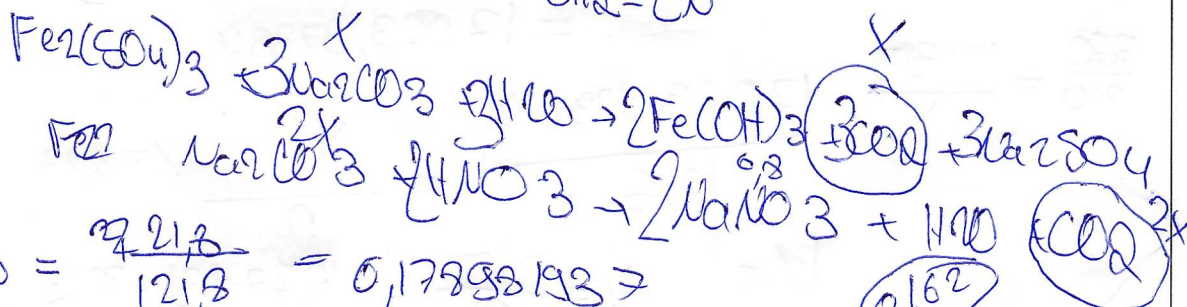 CH2-CN
X X
Fe2(SO4)3 + 3Na2CO3 + 3H2O → 2Fe(OH)3 + 3CO2 + 3Na2SO4
2X 0,8 2X
Na2CO3 + 2HNO3 → 2NaNO3 + H2O + CO2
= 21,8/121,8 = 0,178981937
0,162